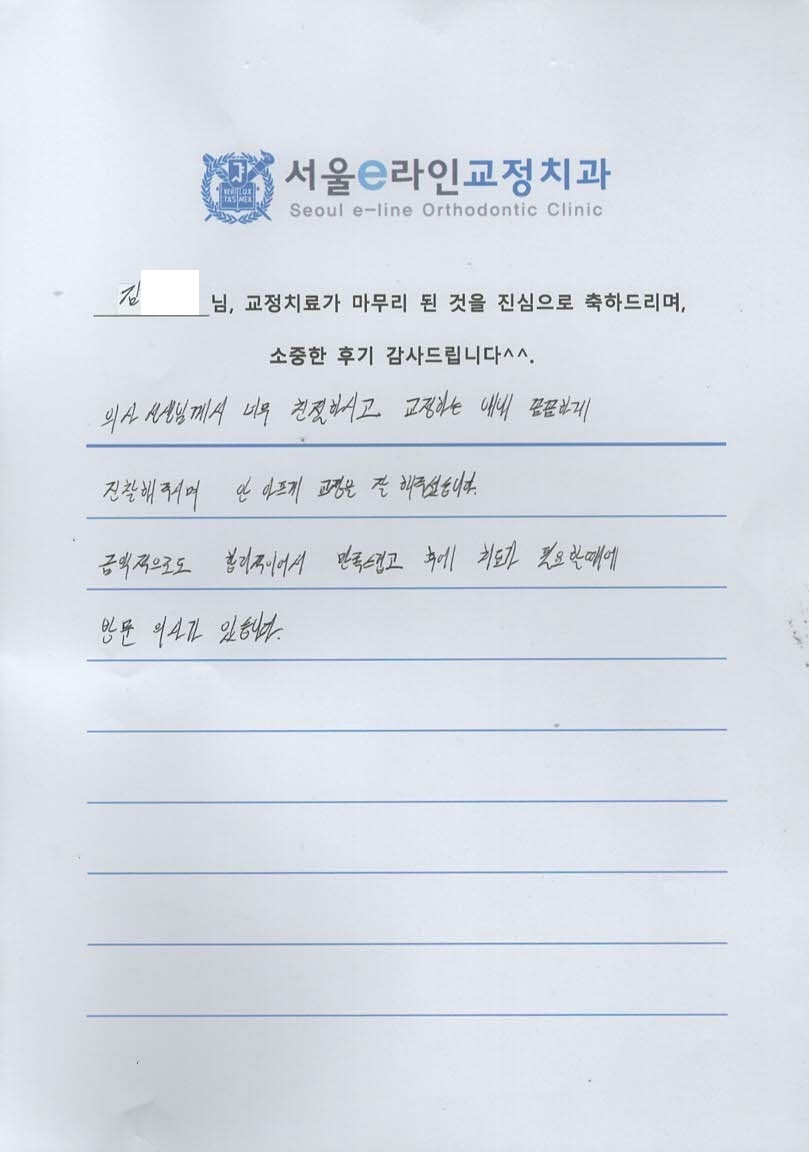 VERI LUX
TAS MEA
서울e라인교정치과
Seoul e-line Orthodontic Clinic
김 님, 교정치료가 마무리 된 것을 진심으로 축하드리며,
소중한 후기 감사드립니다^^.
의사 선생님께서 너무 친절하시고 교정하는 내내 꼼꼼하게
진찰해주시며 안 아프게 교정을 잘 해주셨습니다.
금액적으로도 합리적이어서 만족스럽고 후에 치료가 필요할때에
방문 의사가 있습니다.